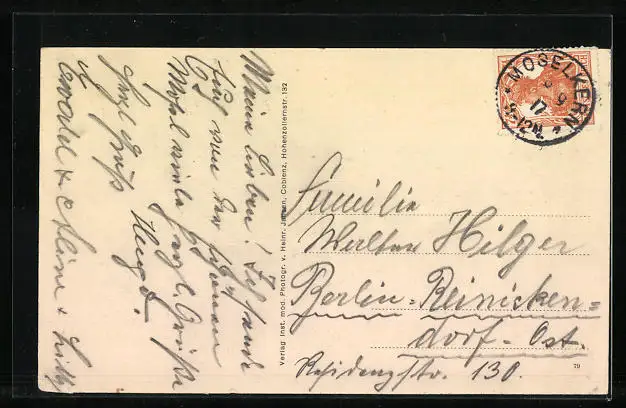 Meine Lieben! Ich sende
Euch von der schönen
Mosel viele herzl. Grüße
Herzl. Gruß
Ewald + +
Verlag Inst. mod. Photogr. v. Heinr. Coblenz, Hohenzollernstr. 132
MOSELKERN
9
17
Familie
Walter Hilger
Berlin-Reinicken=
dorf-Ost.
Residenzstr. 130.
79